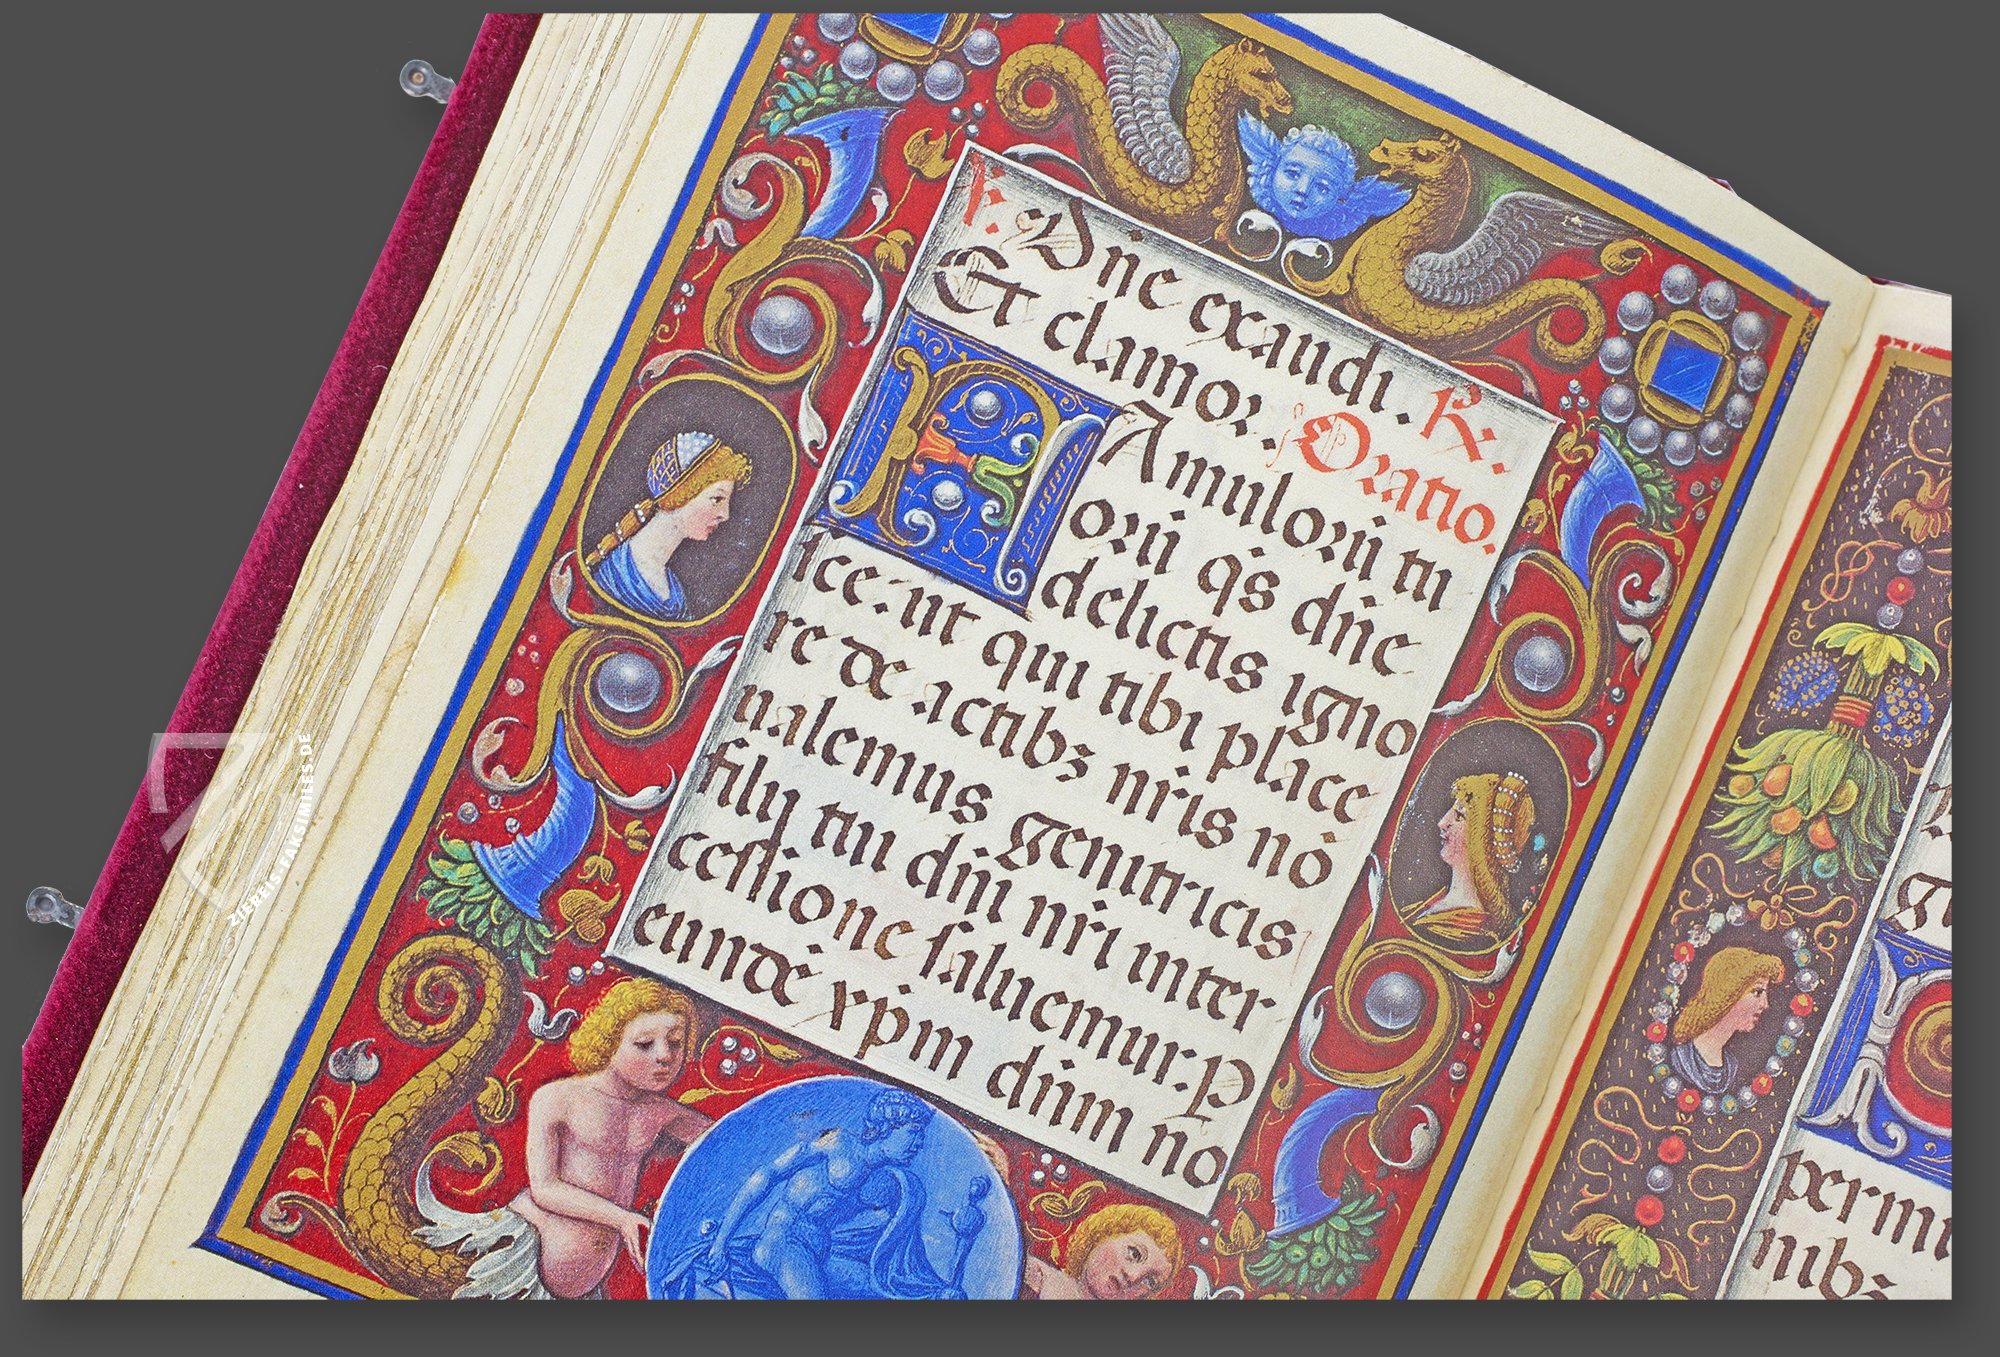 V. Dn̄e exaudi. R.
Et clamor. Oratio.
FAmulorū tu
orū q̄s dn̄e
delictis igno
sce: ut qui tibi place
re de actibꝫ nr̄is nō
ualemus genitricis
filij tui dn̄i nr̄i inter
cessione saluemur. P
eundē xp̄m dn̄m no
permi
nibꝫ
ZIEREIS FAKSIMILES.DE